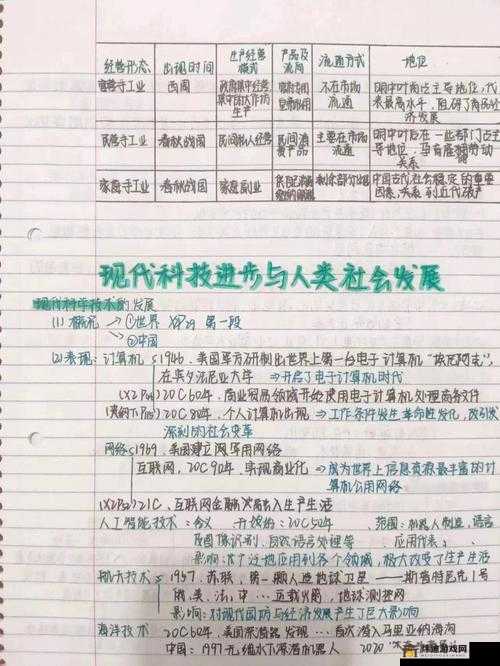 经营形态 出现时间 生产经营模式 产品及流向 流通方式 地位
官营手工业 西周 政府集中经营 生产 不在市场流通 明中叶前占主导地位，代表最高水平，阻碍了商品经济发展
民营手工业 春秋战国 民间私人经营 民间消费产品 主要在市场流通 明中叶后在一些部门占主导地位，孕育雇佣劳动关系
家庭手工业 春秋战国 家庭副业 剩余部分出售 中国古代社会稳定的重要因素
现代科技进步与人类社会发展
现代科学技术的发展
(1) 概况 → ①世界 第一段
→ ②中国
(2) 表现：计算机 1946，美国军方研制出世界上第一台电子计算机"埃尼阿克"，
在宾夕法尼亚大学 ⇒ 开启了电子计算机时代
20C60年，商业贸易领域开始使用电子计算机处理商务文件
20C80年，个人计算机出现 ⇒ 工作条件发生革命性变化，改引发
深刻的社会变革
网络 1969，美国建立 军用网络
互联网，20C90年，实现商业化 ⇒ 成为世界上信息资源最丰富的计
算机公用网络
21C，互联网金融 出入生产生活
人工智能技术： 开始：20C50年 范围：机器人制造，语言
及图像识别，自然语言处理等 应用代表：
影响：广泛地应用到各个领域，极大改变了生产生活
航天技术 1957，苏联，第一颗人造地球卫星 —— 斯普特尼克1号
俄，美，法，中… 运载火箭，地球测控网
影响：对现代国防与经济发展产生了巨大影响
海洋技术 20C60年，美国深潜器 发现 … 首次潜入马里亚纳海沟
中国：1997 无缆水下 机器人 2020